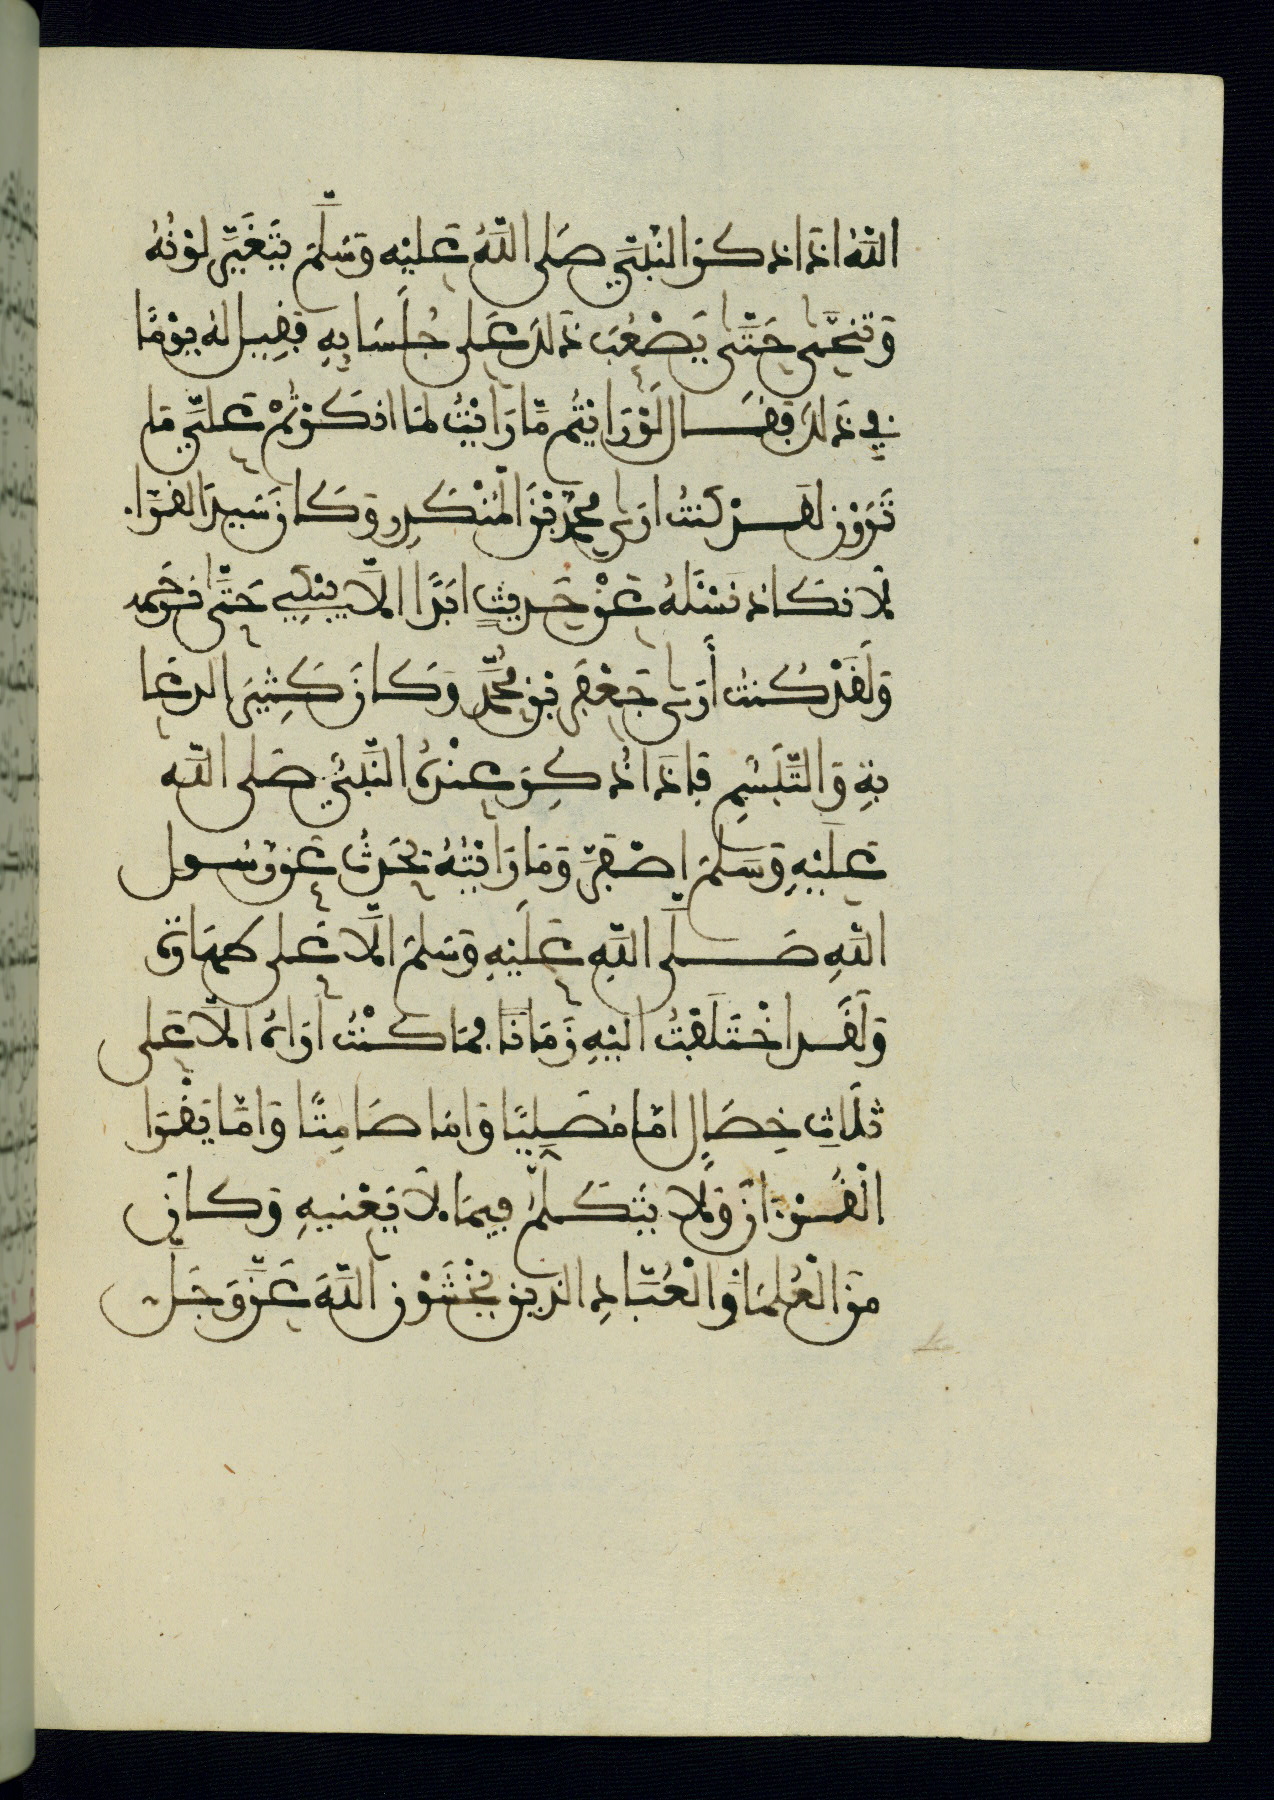 اللَّهُ اذَا ذكر النبيّ صَلى اللَّهُ عَليْهِ وَسَلّمَ يَتَغَيَّر لَوْنُهُ
وَينحَنى حَتَّى يَصْعُبَ ذَلكَ عَلى جُلَسَايِهِ فَقِيل لهُ يَوْمًا
في ذَلكَ فقَال لَوْ رَايْتُم مَّا رَايْتُ لمَا انكَرْتُمْ عَليَّ مَا
تَرَوْن لقدْ كنتُ ارَى محمّدَ بْنَ الْمُنْكَدِرِ وَكَانَ سَيِّدَ القرَّا
لَا نكَاد نَسْئَلهُ عَنْ حَدِيثٍ ابَدًا الَّا يبْكِي حَتَّى نرحَمه
وَلَقَدْ كُنت أَرَى جَعْفَر بن محَمَّد وَكَانَ كَثِيرَ الدعَا
بةِ وَالتَّبَسُّمِ فَإذَا ذُكِرَ عِنْدَهُ النَّبيّ صَلى اللَّه
عَليْهِ وَسَلمَ اصْفَرَّ وَمَا رَايْتُهُ يُحَدث عَن رسُول
اللَّهِ صَلَّى اللَّه عَلَيْهِ وَسَلمَ الَّا عَلى طهَارَة
وَلَقَد اخْتَلَفْتُ الَيْهِ زَمَانًا فمَا كنْتُ ارَاهُ الَّا عَلى
ثلَاثِ خِصَالٍ امَّا مُصَلِيًا وَامَا صَامِتًا وَامَّا يَقْرَا
الْقُرْءَانَ وَلَا يَتَكَلمُ فِيمَا لَا يَعْنيهِ وَكَانَ
مِنَ الْعُلمَا وَالْعُبَّادِ الذين يخْشَوْن اللَّهَ عَزَّ وَجَلَّ